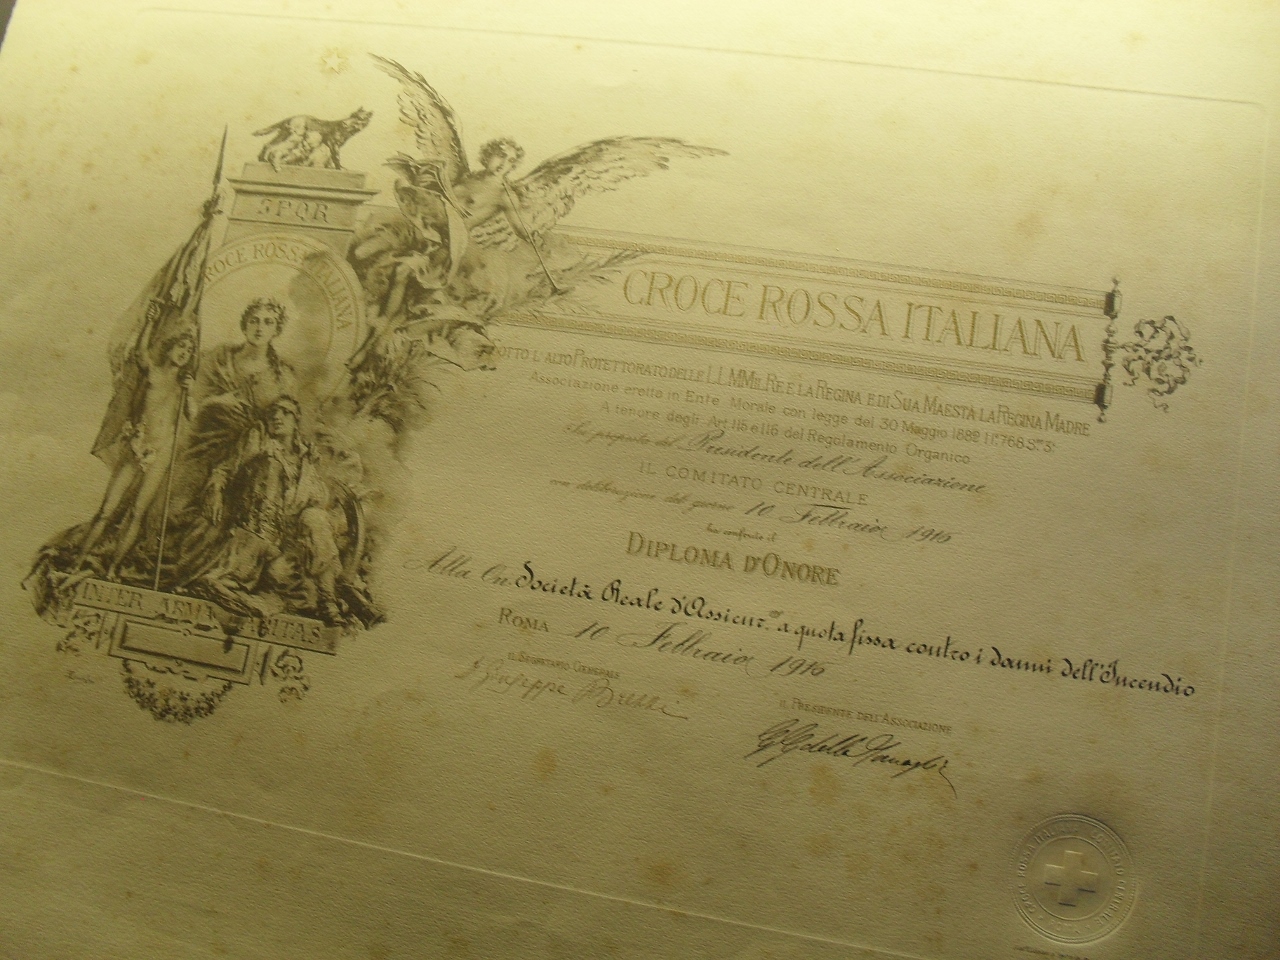 SPQR
CROCE ROSSA ITALIANA
CROCE ROSSA ITALIANA
SOTTO L'ALTO PROTETTORATO DELLE LL.MM. IL RE E LA REGINA E DI SUA MAESTÀ LA REGINA MADRE
Associazione eretta in Ente Morale con legge del 30 Maggio 1882 N. 768 S. 3ª
A tenore degli Art. 115 e 116 del Regolamento Organico
Su proposta del Presidente dell'Associazione
IL COMITATO CENTRALE
con deliberazione del giorno 10 Febbraio 1916
ha conferito il
DIPLOMA D'ONORE
Alla On. Società Reale d'Assicur.ni a quota fissa contro i danni dell'Incendio
ROMA 10 Febbraio 1916
IL SEGRETARIO GENERALE
Giuseppe
IL PRESIDENTE DELL'ASSOCIAZIONE
INTER ARMA CARITAS
CROCE ROSSA ITALIANA COMITATO CENTRALE